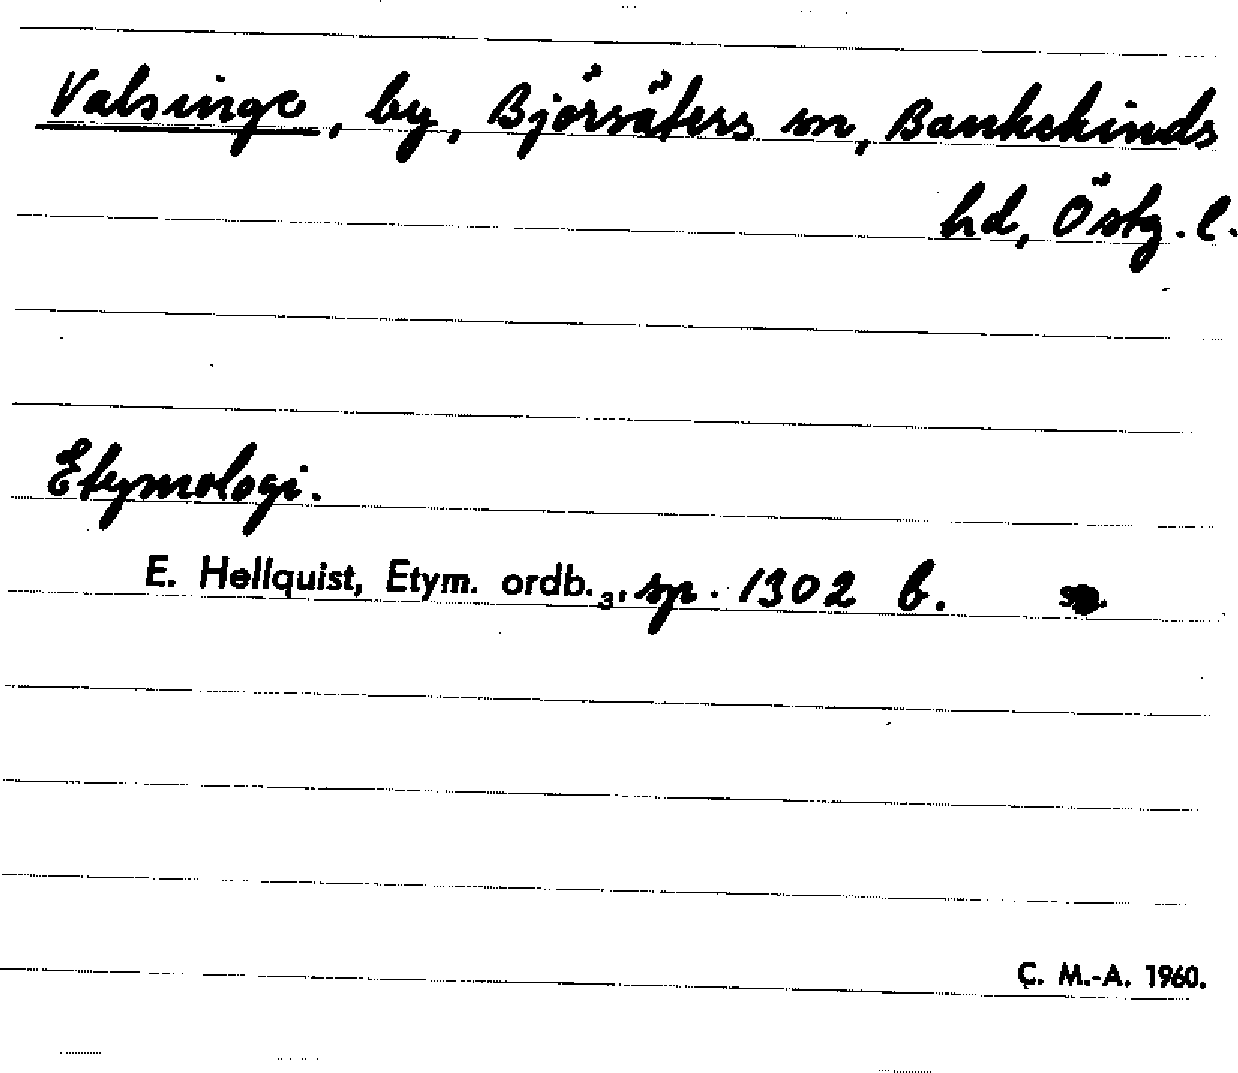 Valsinge, by, Björsäters sn, Bankekinds
hd, Östg. l.
Etymologi.
E. Hellquist, Etym. ordb.₃, sp. 1302 b.
C. M.-A. 1960.